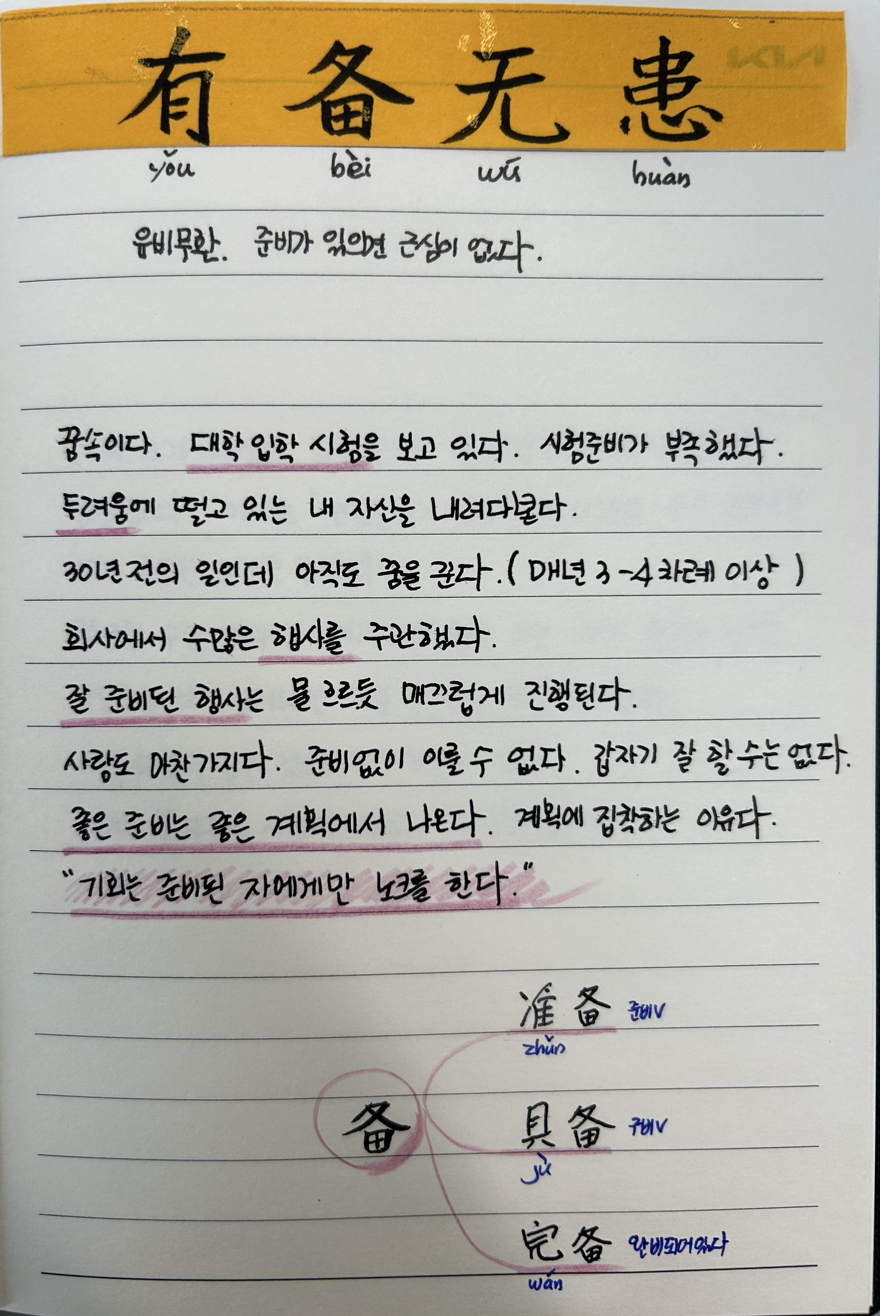 有备无患
yǒu bèi wú huàn
유비무환. 준비가 있으면 근심이 없다.
꿈속이다. 대학 입학 시험을 보고 있다. 시험준비가 부족했다.
두려움에 떨고 있는 내 자신을 내려다본다.
30년전의 일인데 아직도 꿈을 꾼다. (매년 3-4차례 이상)
회사에서 수많은 행사를 주관했다.
잘 준비된 행사는 물 흐르듯 매끄럽게 진행된다.
사랑도 마찬가지다. 준비없이 이룰 수 없다. 갑자기 잘 할 수는 없다.
좋은 준비는 좋은 계획에서 나온다. 계획에 집착하는 이유다.
"기회는 준비된 자에게만 노크를 한다."
准备 준비V
zhǔn
备
具备 구비V
jù
完备 완비되어있다
wán